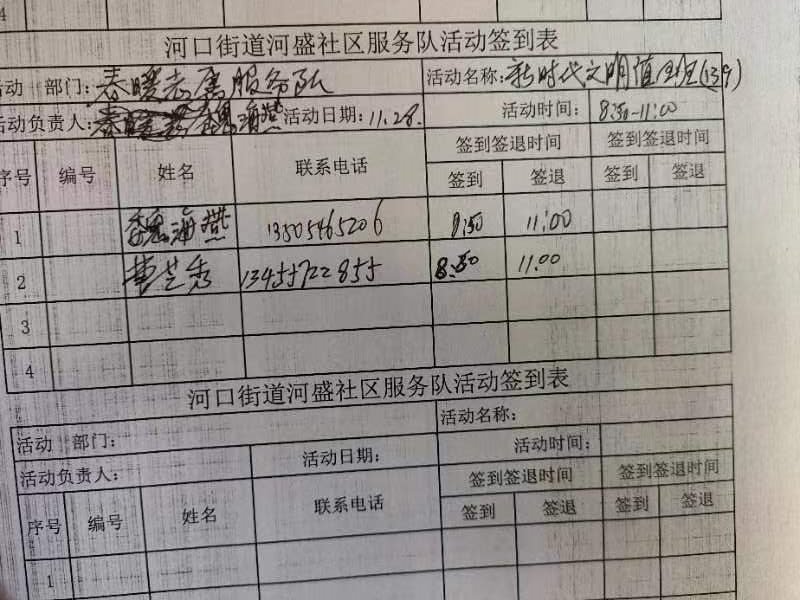 4
河口街道河盛社区服务队活动签到表
活动 部门：春暖志愿服务队 活动名称：新时代文明值班(139)
活动负责人：魏海燕 活动日期：11.28. 活动时间： 8:30-11:00
序号 编号 姓名 联系电话 签到签退时间 签到签退时间
签到 签退 签到 签退
1 魏海燕 13505465206 8:30 11:00
2 董芝秀 13455722855 8:30 11:00
3
4
河口街道河盛社区服务队活动签到表
活动 部门： 活动名称：
活动负责人： 活动日期： 活动时间：
序号 编号 姓名 联系电话 签到签退时间 签到签退时间
签到 签退 签到 签退
1